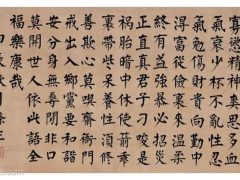 寡慾精神爽思多血
氣衰少杯不亂性忍
氣免傷財貴自勤中
得富從儉裏來温柔
終有益強暴必招災
正直真君子刁唆是
禍胎暗中休使箭乖
裏放些獃養性須修
善欺心莫喫齋衙門
戒出入鄉黨要和諧
安分身無辱閑非口
莫開世人依此語全
福樂康哉